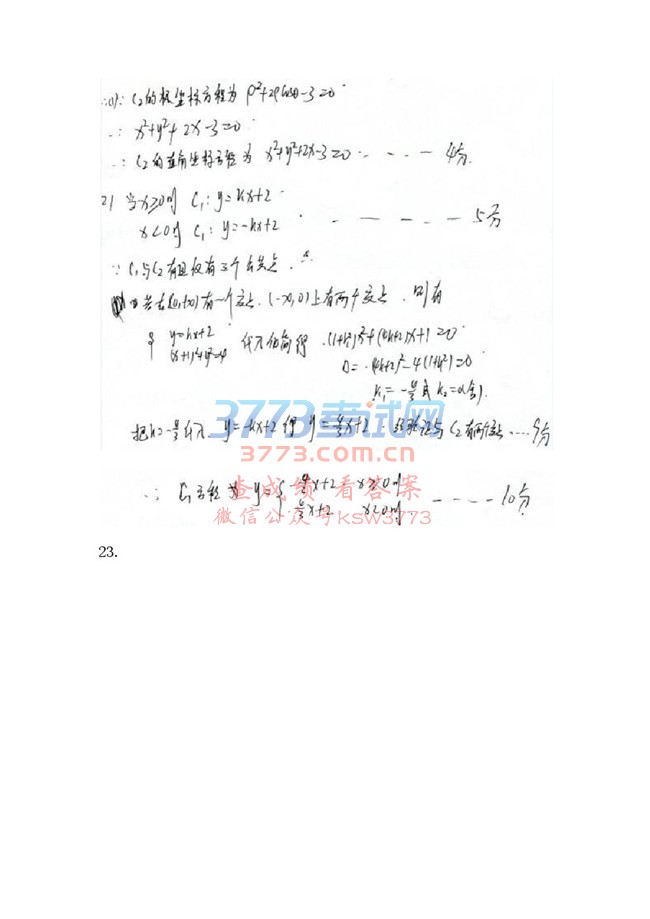 (1) ∵ C₂的极坐标方程为 ρ²+2ρcosθ-3=0
∴ x²+y²+2x-3=0
∴ C₂的直角坐标方程为 x²+y²+2x-3=0 - - - - 4分
2) 当x≥0时 C₁: y=kx+2
x<0时 C₁: y=-kx+2 - - - - - 5分
∵ C₁与C₂有且仅有三个公共点.
若在(0,+∞)有一个交点, (-∞,0)上有两个交点. 则有
y=kx+2
(x+1)²+y²=4
代入化简得 (1+k²)x²+(4k+2)x+1=0
Δ=(4k+2)²-4(1+k²)=0
k₁=-4/3或k₂=0(舍).
把k=-4/3代入 y=-kx+2得 y=4/3x+2. 经验证与C₂有两个交点 ....9分
3773考试网
3773.com.cn
∴ C₁方程为 y={ -4/3x+2 x≥0时
4/3x+2 x<0时. - - - - 10分
查成绩 看答案
微信公众号ksw3773
23.